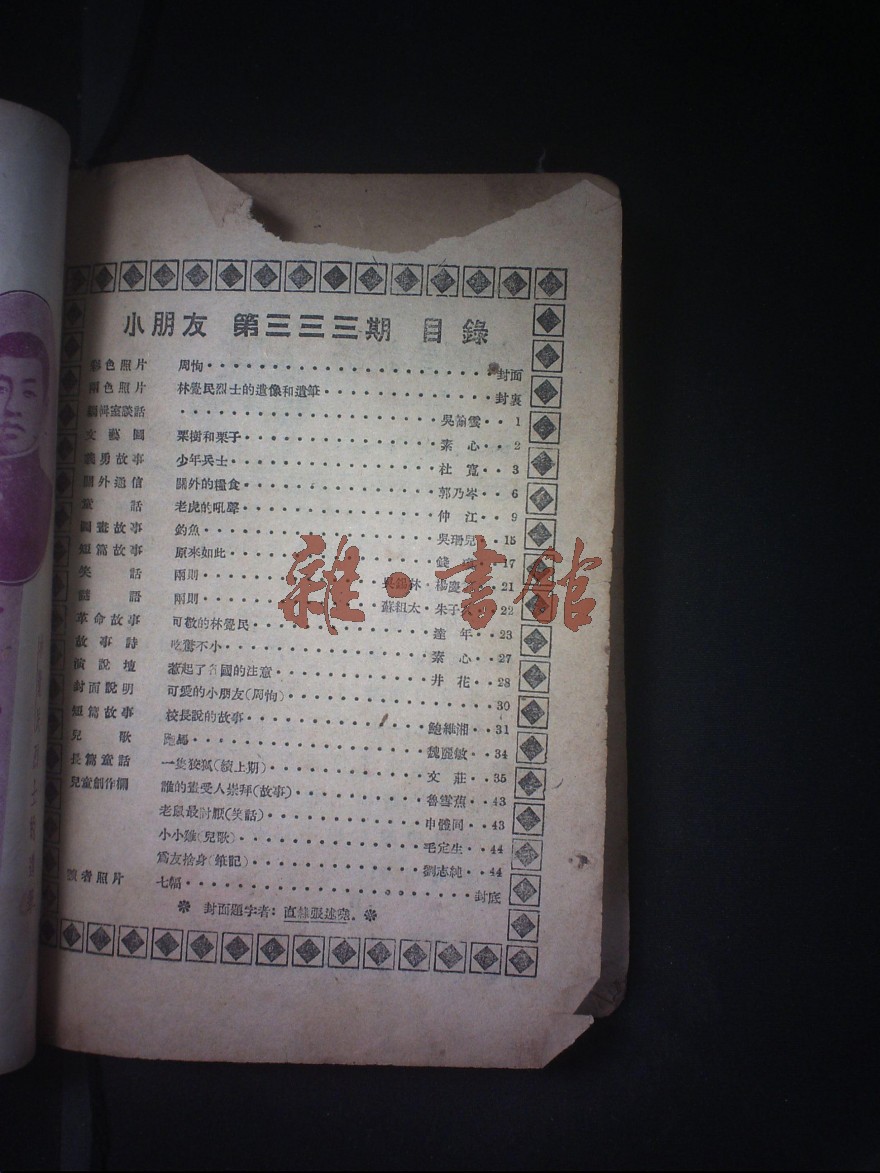 小朋友 第三三三期 目錄
彩色照片 周恂 封面
兩色照片 林覺民烈士的遺像和遺筆 封裏
編輯室談話 吳翰雲 1
文藝圖 栗樹和栗子 素心 2
義勇故事 少年兵士 杜寬 3
關外通信 關外的糧食 郭乃岑 6
童話 老虎的吼聲 仲江 9
圖畫故事 釣魚 吳珊兒 15
短篇故事 原來如此 錢 17
笑話 兩則 楊慶 21
謎語 兩則 蘇組太·朱子 22
革命故事 可敬的林覺民 達年 23
故事詩 吃驚不小 素心 27
演說壇 惹起了各國的注意 井花 28
封面說明 可愛的小朋友(周恂) 30
短篇故事 校長說的故事 鮑維湘 31
兒歌 跑馬 魏麗敏 34
長篇童話 一隻狡狐(續上期) 文莊 35
兒童創作欄 誰的畫受人崇拜(故事) 魯雪蕉 43
老鼠最討厭(笑話) 申體同 43
小小雞(兒歌) 毛定生 44
為友捨身(筆記) 劉志純 44
讀者照片 七幅 封底
※ 封面題字者：直隸張述堯。※
雜·書館